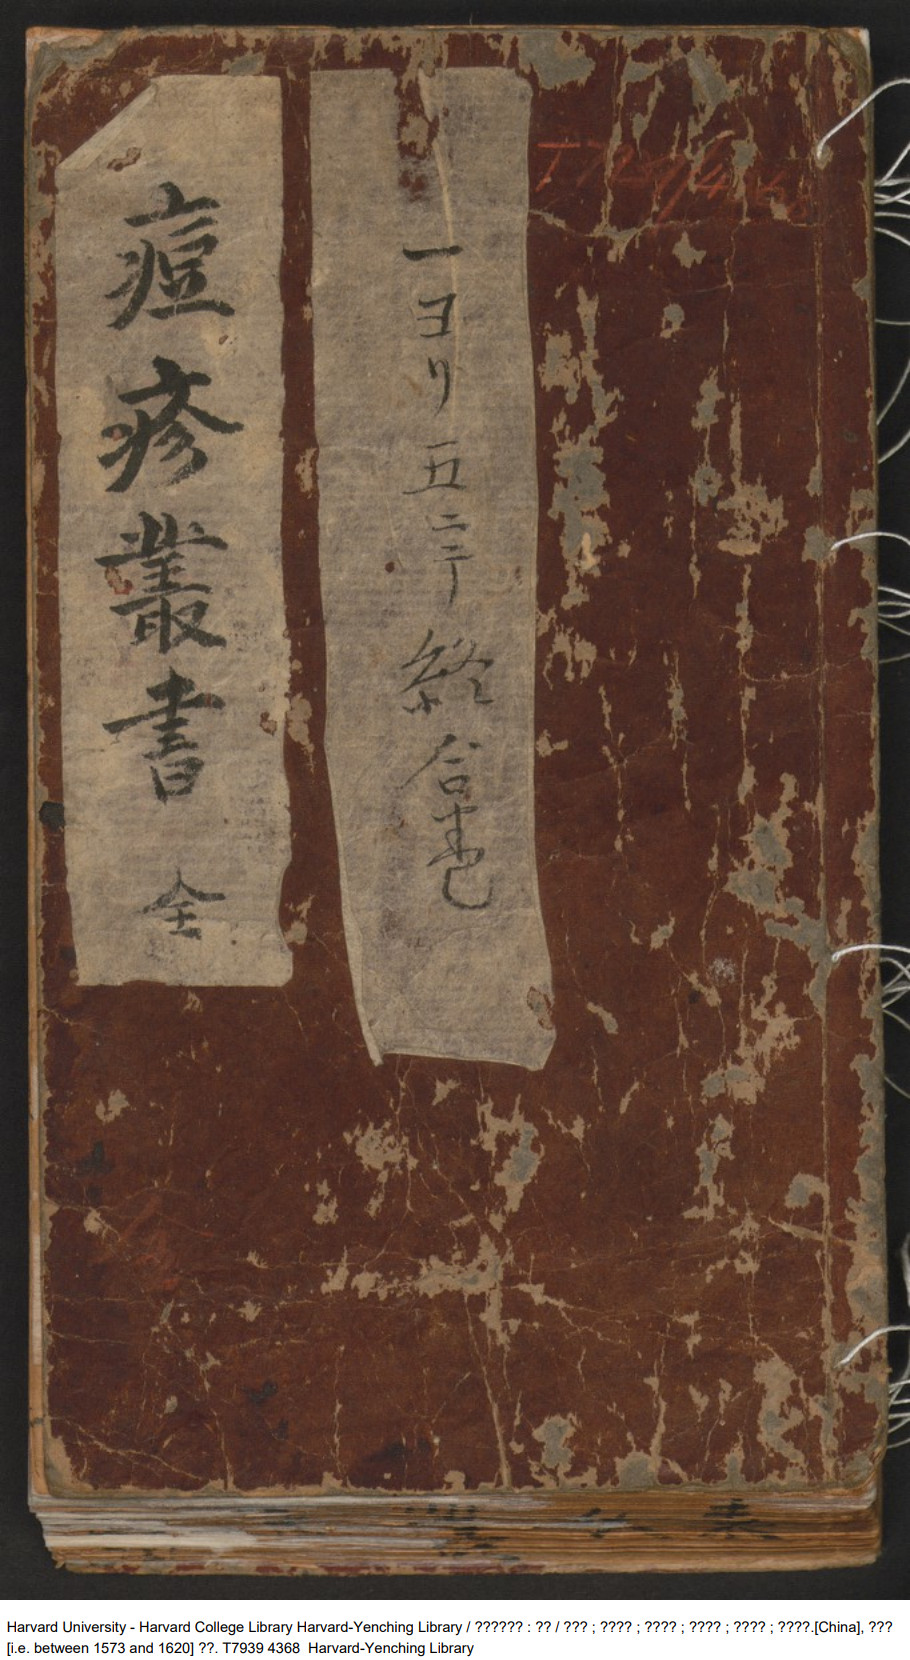 一ヨリ五ニテ終合巻
痘疹叢書 全
Harvard University - Harvard College Library Harvard-Yenching Library / ?????? : ?? / ??? ; ???? ; ???? ; ???? ; ???? ; ????.[China], ???
[i.e. between 1573 and 1620] ??. T7939 4368  Harvard-Yenching Library